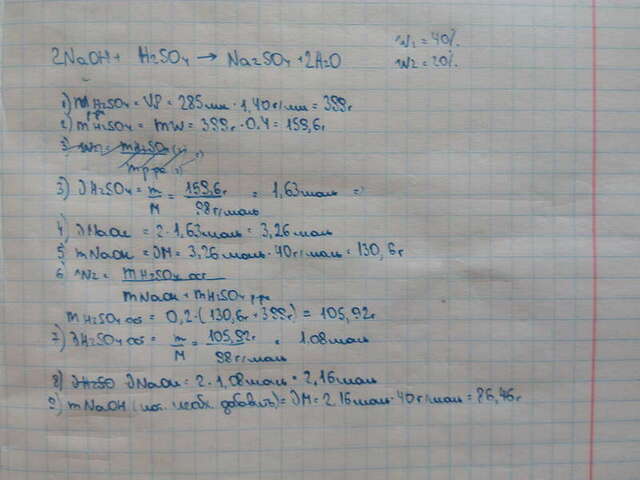 2NaOH + H2SO4 → Na2SO4 + 2H2O
w1 = 40%.
w2 = 20%.
1) mH2SO4 = Vρ = 285мл · 1,40г/мл = 399г
р-ра
2) mH2SO4 = mw = 399г · 0,4 = 159,6г
3) νH2SO4 = m/M = 159,6г / 98г/моль = 1,63моль
4) νNaOH = 2 · 1,63моль = 3,26моль
5) mNaOH = νM = 3,26моль · 40г/моль = 130,6г
6) w2 = mH2SO4 ост / mNaOH + mH2SO4 р-ра
mH2SO4 ост = 0,2 · (130,6г + 399г) = 105,92г
7) νH2SO4 ост = m/M = 105,92г / 98г/моль = 1.08моль
8) νNaOH = 2 · 1,08моль = 2,16моль
9) mNaOH (необх. добавить) = νM = 2,16моль · 40г/моль = 86,46г